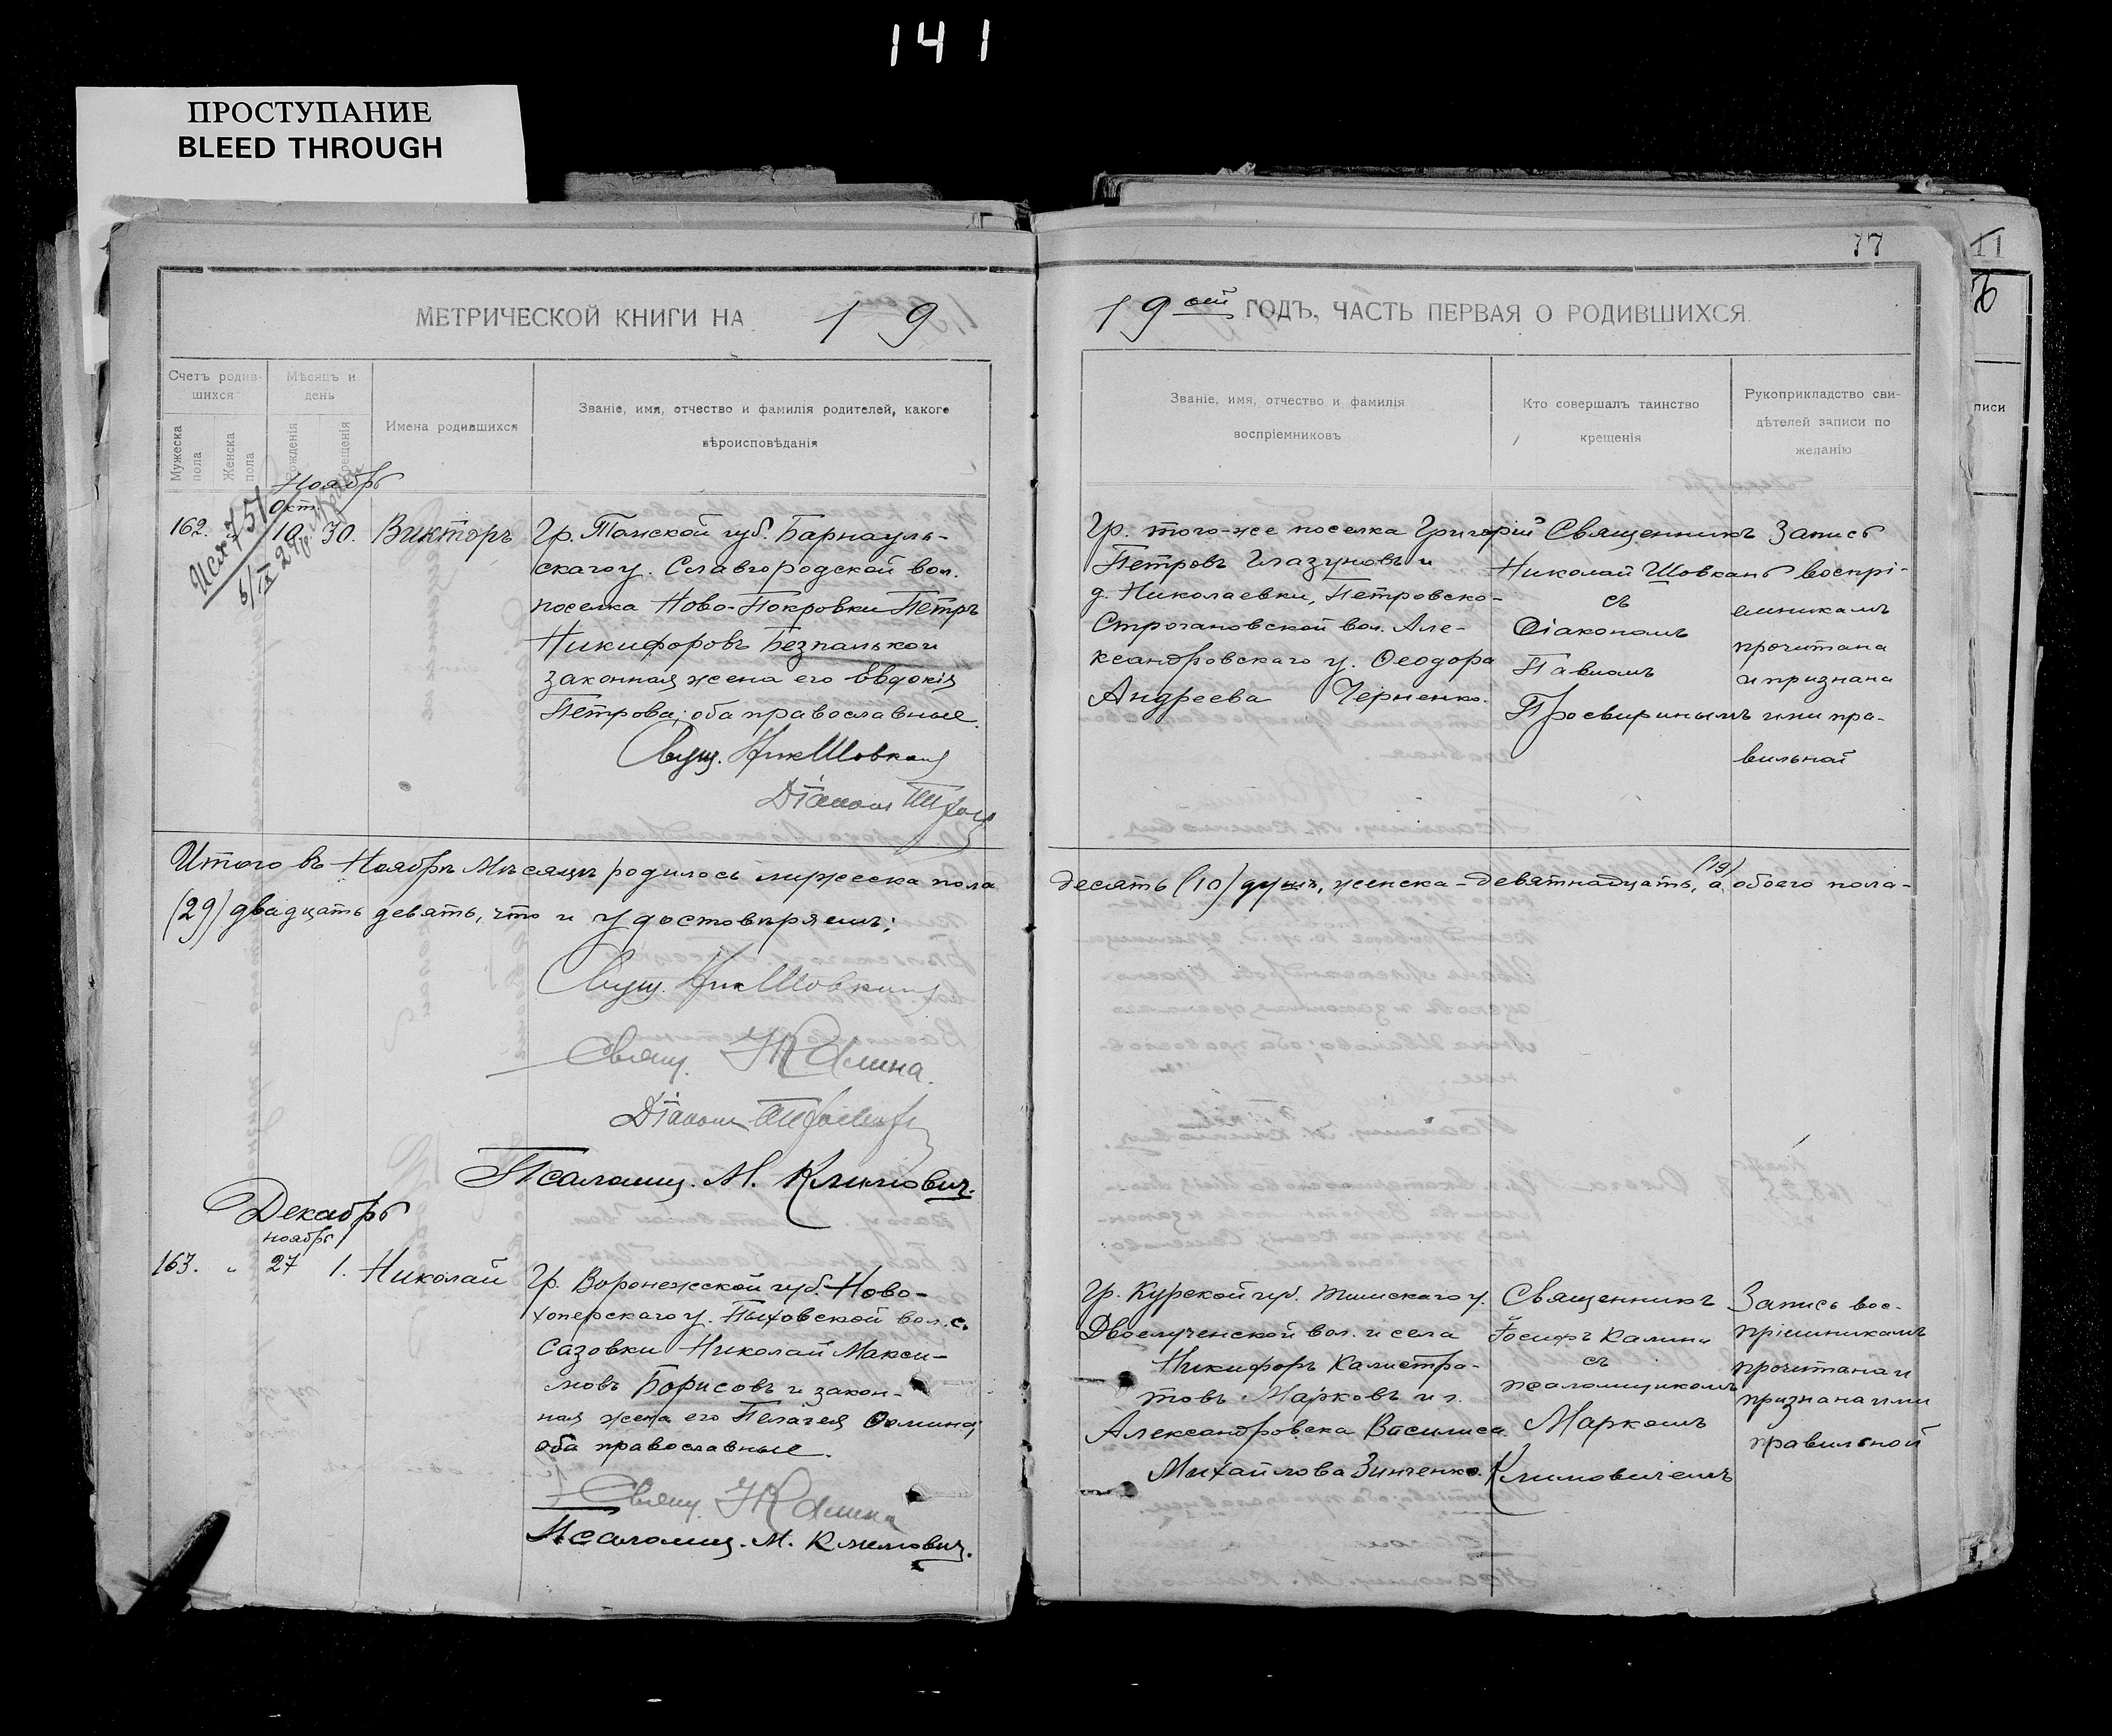 141
ПРОСТУПАНИЕ
BLEED THROUGH
МЕТРИЧЕСКОЙ КНИГИ НА 19
Счетъ родив-
шихся
Мѣсяцъ и
день
Мужеска
пола
Женска
пола
Рожденія
Крещенія
Имена родившихся
Званіе, имя, отчество и фамилія родителей, какого
вѣроисповѣданія
Ноябрь
Окт.
Исх 751
162. " 10. 30. Викторъ
Гр. Томской губ. Барнауль-
скаго у. Славгородской вол.
поселка Ново-Покровки Петръ
Никифоровъ Безпалько и
законная жена его Евдокія
Петрова; оба православные.
Свящ. Ник Шовкань
Діаконъ
Итого въ Ноябрѣ Мѣсяцѣ родилось мужеска пола
(29) двадцать девять, что и удостовѣряемъ:
Свящ. Ник Шовкань
Свящ. І Калина.
Діаконъ
Псаломщ. М. Климович.
Декабрь
ноябрь
163. " 27 1. Николай
Гр. Воронежской губ. Ново-
хоперскаго у. Пыховской вол. с.
Сазовки Николай Макси-
мовъ Борисовъ и закон-
ная жена его Пелагея Ѳомина;
оба православные.
Свящ. І Калина
Псаломщ. М. Климович.
77
19 ый ГОДЪ, ЧАСТЬ ПЕРВАЯ О РОДИВШИХСЯ.
Званіе, имя, отчество и фамилія
воспріемниковъ
Кто совершалъ таинство
крещенія
Рукоприкладство сви-
дѣтелей записи по
желанію
Гр. того-же поселка Григорій
Петровъ Глазуновъ и
д. Николаевки, Петровско-
Строгановской вол. Але-
ксандровскаго у. Ѳеодора
Андреева Черненко.
Священникъ
Николай Шовкань
съ
Діакономъ
Павломъ
Просвиринымъ
Запись
воспрі-
емникамъ
прочитана
и признана
ими пра-
вильной
десять (10) душъ, женска - девятнадцать, (19) а обоего пола -
Гр. Курской губ. Тимскаго у.
Двоелученской вол. и села
Никифоръ Калистра-
товъ Марковъ и г.
Александровска Василиса
Михайлова Зинченко.
Священникъ
Іосифъ Калина
съ
псаломщикомъ
Маркомъ
Климовичемъ
Запись вос-
пріемникамъ
прочитана и
признана ими
правильной
11
писи